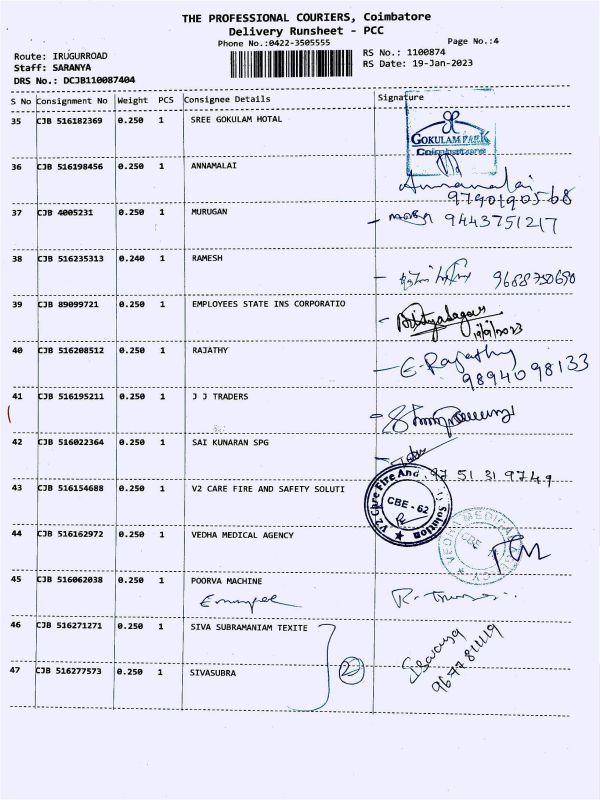 THE PROFESSIONAL COURIERS, Coimbatore
Delivery Runsheet - PCC
Phone No.:0422-3505555
Page No.:4
Route: IRUGURROAD
RS No.: 1100874
Staff: SARANYA
RS Date: 19-Jan-2023
DRS No.: DCJB110087404
S No Consignment No Weight PCS Consignee Details Signature
35 CJB 516182369 0.250 1 SREE GOKULAM HOTAL
GOKULAM PARK
Coimbatore
36 CJB 516198456 0.250 1 ANNAMALAI
Annamalai
9790190568
37 CJB 4005231 0.250 1 MURUGAN
9443751217
38 CJB 516235313 0.240 1 RAMESH
9688750690
39 CJB 89099721 0.250 1 EMPLOYEES STATE INS CORPORATIO
19/9/2023
40 CJB 516208512 0.250 1 RAJATHY
E-Rajathy
9894098133
41 CJB 516195211 0.250 1 J J TRADERS
42 CJB 516022364 0.250 1 SAI KUNARAN SPG
97 51 31 9749
43 CJB 516154688 0.250 1 V2 CARE FIRE AND SAFETY SOLUTI
V2 Care Fire And Solution
CBE - 62
44 CJB 516162972 0.250 1 VEDHA MEDICAL AGENCY
VEDHA MEDICAL
CBE
45 CJB 516062038 0.250 1 POORVA MACHINE
46 CJB 516271271 0.250 1 SIVA SUBRAMANIAM TEXITE
47 CJB 516277573 0.250 1 SIVASUBRA